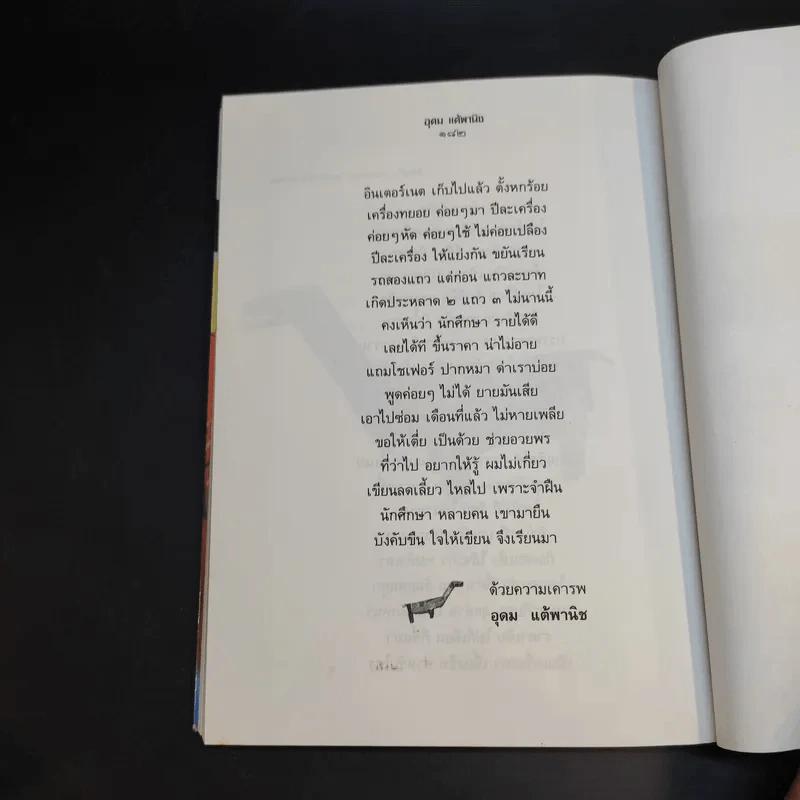 อุดม แต้พานิช
๑๘๒
อินเตอร์เนต เก็บไปแล้ว ตั้งหกร้อย
เครื่องทยอย ค่อยๆมา ปีละเครื่อง
ค่อยๆหัด ค่อยๆใช้ ไม่ค่อยเปลือง
ปีละเครื่อง ให้แย่งกัน ขยันเรียน
รถสองแถว แต่ก่อน แถวละบาท
เกิดประหลาด ๒ แถว ๓ ไม่นานนี้
คงเห็นว่า นักศึกษา รายได้ดี
เลยได้ที ขึ้นราคา น่าไม่อาย
แถมโชเฟอร์ ปากหมา ด่าเราบ่อย
พูดค่อยๆ ไม่ได้ ยายมันเสีย
เอาไปซ่อม เดือนที่แล้ว ไม่หายเพลีย
ขอให้เตี่ย เป็นด้วย ช่วยอวยพร
ที่ว่าไป อยากให้รู้ ผมไม่เกี่ยว
เขียนลดเลี้ยว ไหลไป เพราะจำฝืน
นักศึกษา หลายคน เขามายืน
บังคับขืน ใจให้เขียน จึงเรียนมา
ด้วยความเคารพ
อุดม แต้พานิช